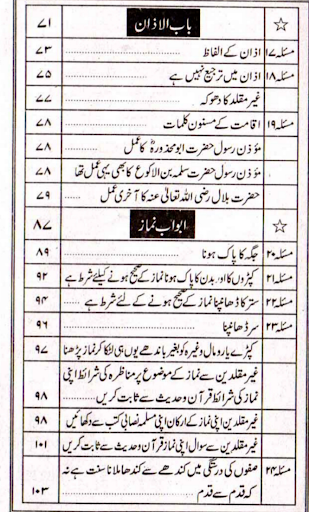 ☆ باب الاذان ۷۱
مسئلہ ۱۷ اذان کے الفاظ ۷۳
مسئلہ ۱۸ اذان میں ترجیع نہیں ہے ۷۵
غیر مقلد کا دھوکہ ۷۷
مسئلہ ۱۹ اقامت کے مسنون کلمات ۷۸
مؤذن رسول حضرت ابو محذورہؓ کا عمل ۷۸
مؤذن رسول حضرت سلمہ بن الاکوع کا بھی یہی عمل تھا ۷۸
حضرت بلال رضی اللہ تعالیٰ عنہ کا آخری عمل ۷۹
☆ ابواب نماز ۸۷
مسئلہ ۲۰ جگہ کا پاک ہونا ۸۹
مسئلہ ۲۱ کپڑوں کا اور بدن کا پاک ہونا نماز کے صحیح ہونے کیلئے شرط ہے ۹۲
مسئلہ ۲۲ ستر کا ڈھانپنا نماز کے صحیح ہونے کے لئے شرط ہے ۹۴
مسئلہ ۲۳ سر ڈھانپنا ۹۶
کپڑے یا رومال وغیرہ کو بغیر باندھے یوں ہی لٹکا کر نماز پڑھنا ۹۷
غیر مقلدین سے نماز کے موضوع پر مناظرہ کی شرائط اپنی
نماز کی شرائط قرآن و حدیث سے ثابت کریں ۹۸
غیر مقلدین اپنی نماز کے ارکان اپنی مسلمہ نصابی کتب سے دکھائیں ۹۸
غیر مقلدین سے سوال اپنی نماز قرآن و حدیث سے ثابت کریں ۱۰۱
مسئلہ ۲۴ صفوں کی درستگی میں کندھے سے کندھا ملانا سنت ہے نہ
کہ قدم سے قدم ۱۰۳